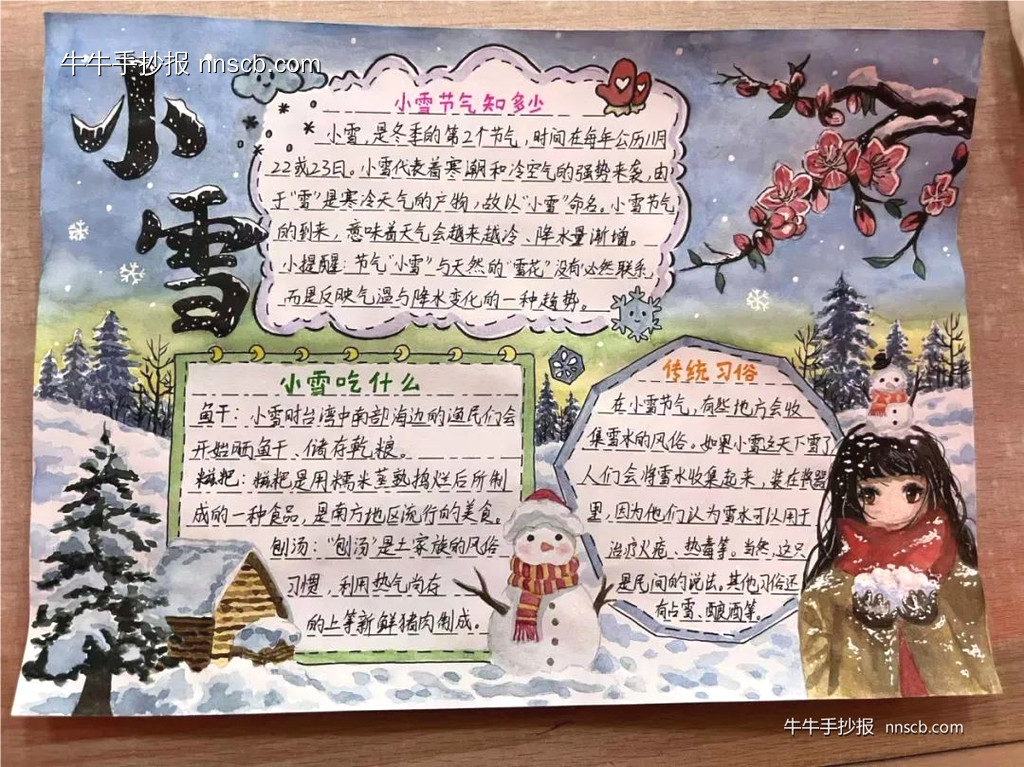 牛牛手抄报 nnscb.com
小雪
小雪节气知多少
小雪，是冬季的第2个节气，时间在每年公历11月
22或23日。小雪代表着寒潮和冷空气的强势来袭，由
于“雪”是寒冷天气的产物，故以“小雪”命名。小雪节气
的到来，意味着天气会越来越冷、降水量渐增。
小提醒：节气“小雪”与天然的“雪花”没有必然联系，
而是反映气温与降水变化的一种趋势。
小雪吃什么
鱼干：小雪时台湾中南部海边的渔民们会
开始晒鱼干、储存乾粮。
糍粑：糍粑是用糯米蒸熟捣烂后所制
成的一种食品，是南方地区流行的美食。
刨汤：“刨汤”是土家族的风俗
习惯，利用热气尚存
的上等新鲜猪肉制成。
传统习俗
在小雪节气，有些地方会收
集雪水的风俗。如果小雪这天下雪了
人们会将雪水收集起来，装在瓷器
里，因为他们认为雪水可以用于
治疗火疮、热毒等。当然，这只
是民间的说法。其他习俗还
有占雪、酿酒等。
牛牛手抄报 nnscb.com